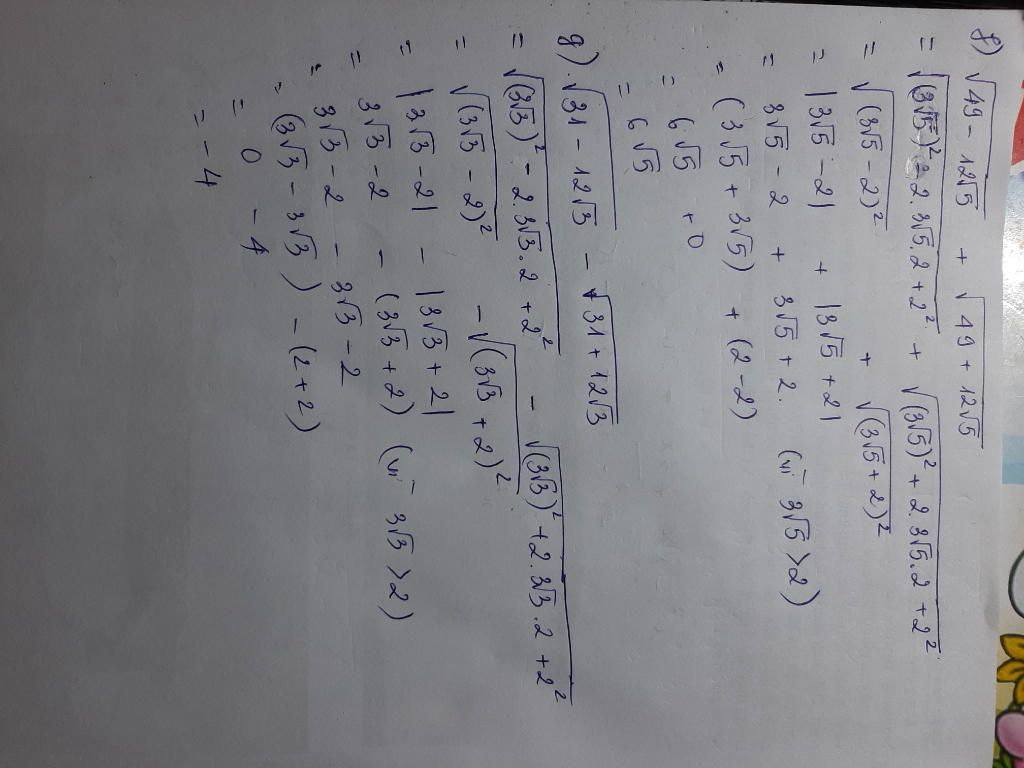 f) √(49 - 12√5) + √(49 + 12√5)
= √((3√5)² - 2.3√5.2 + 2²) + √((3√5)² + 2 3√5.2 + 2²)
= √((3√5 - 2)²) + √((3√5 + 2)²)
= |3√5 - 2| + |3√5 + 2|
= 3√5 - 2 + 3√5 + 2. (vì 3√5 > 2)
= (3√5 + 3√5) + (2 - 2)
= 6√5 + 0
= 6√5
g) √(31 - 12√3) - √(31 + 12√3)
= √((3√3)² - 2 3√3.2 + 2²) - √((3√3)² + 2.3√3.2 + 2²)
= √((3√3 - 2)²) - √((3√3 + 2)²)
= |3√3 - 2| - |3√3 + 2|
= 3√3 - 2 - (3√3 + 2) (vì 3√3 > 2)
= 3√3 - 2 - 3√3 - 2
= (3√3 - 3√3) - (2 + 2)
= 0 - 4
= - 4